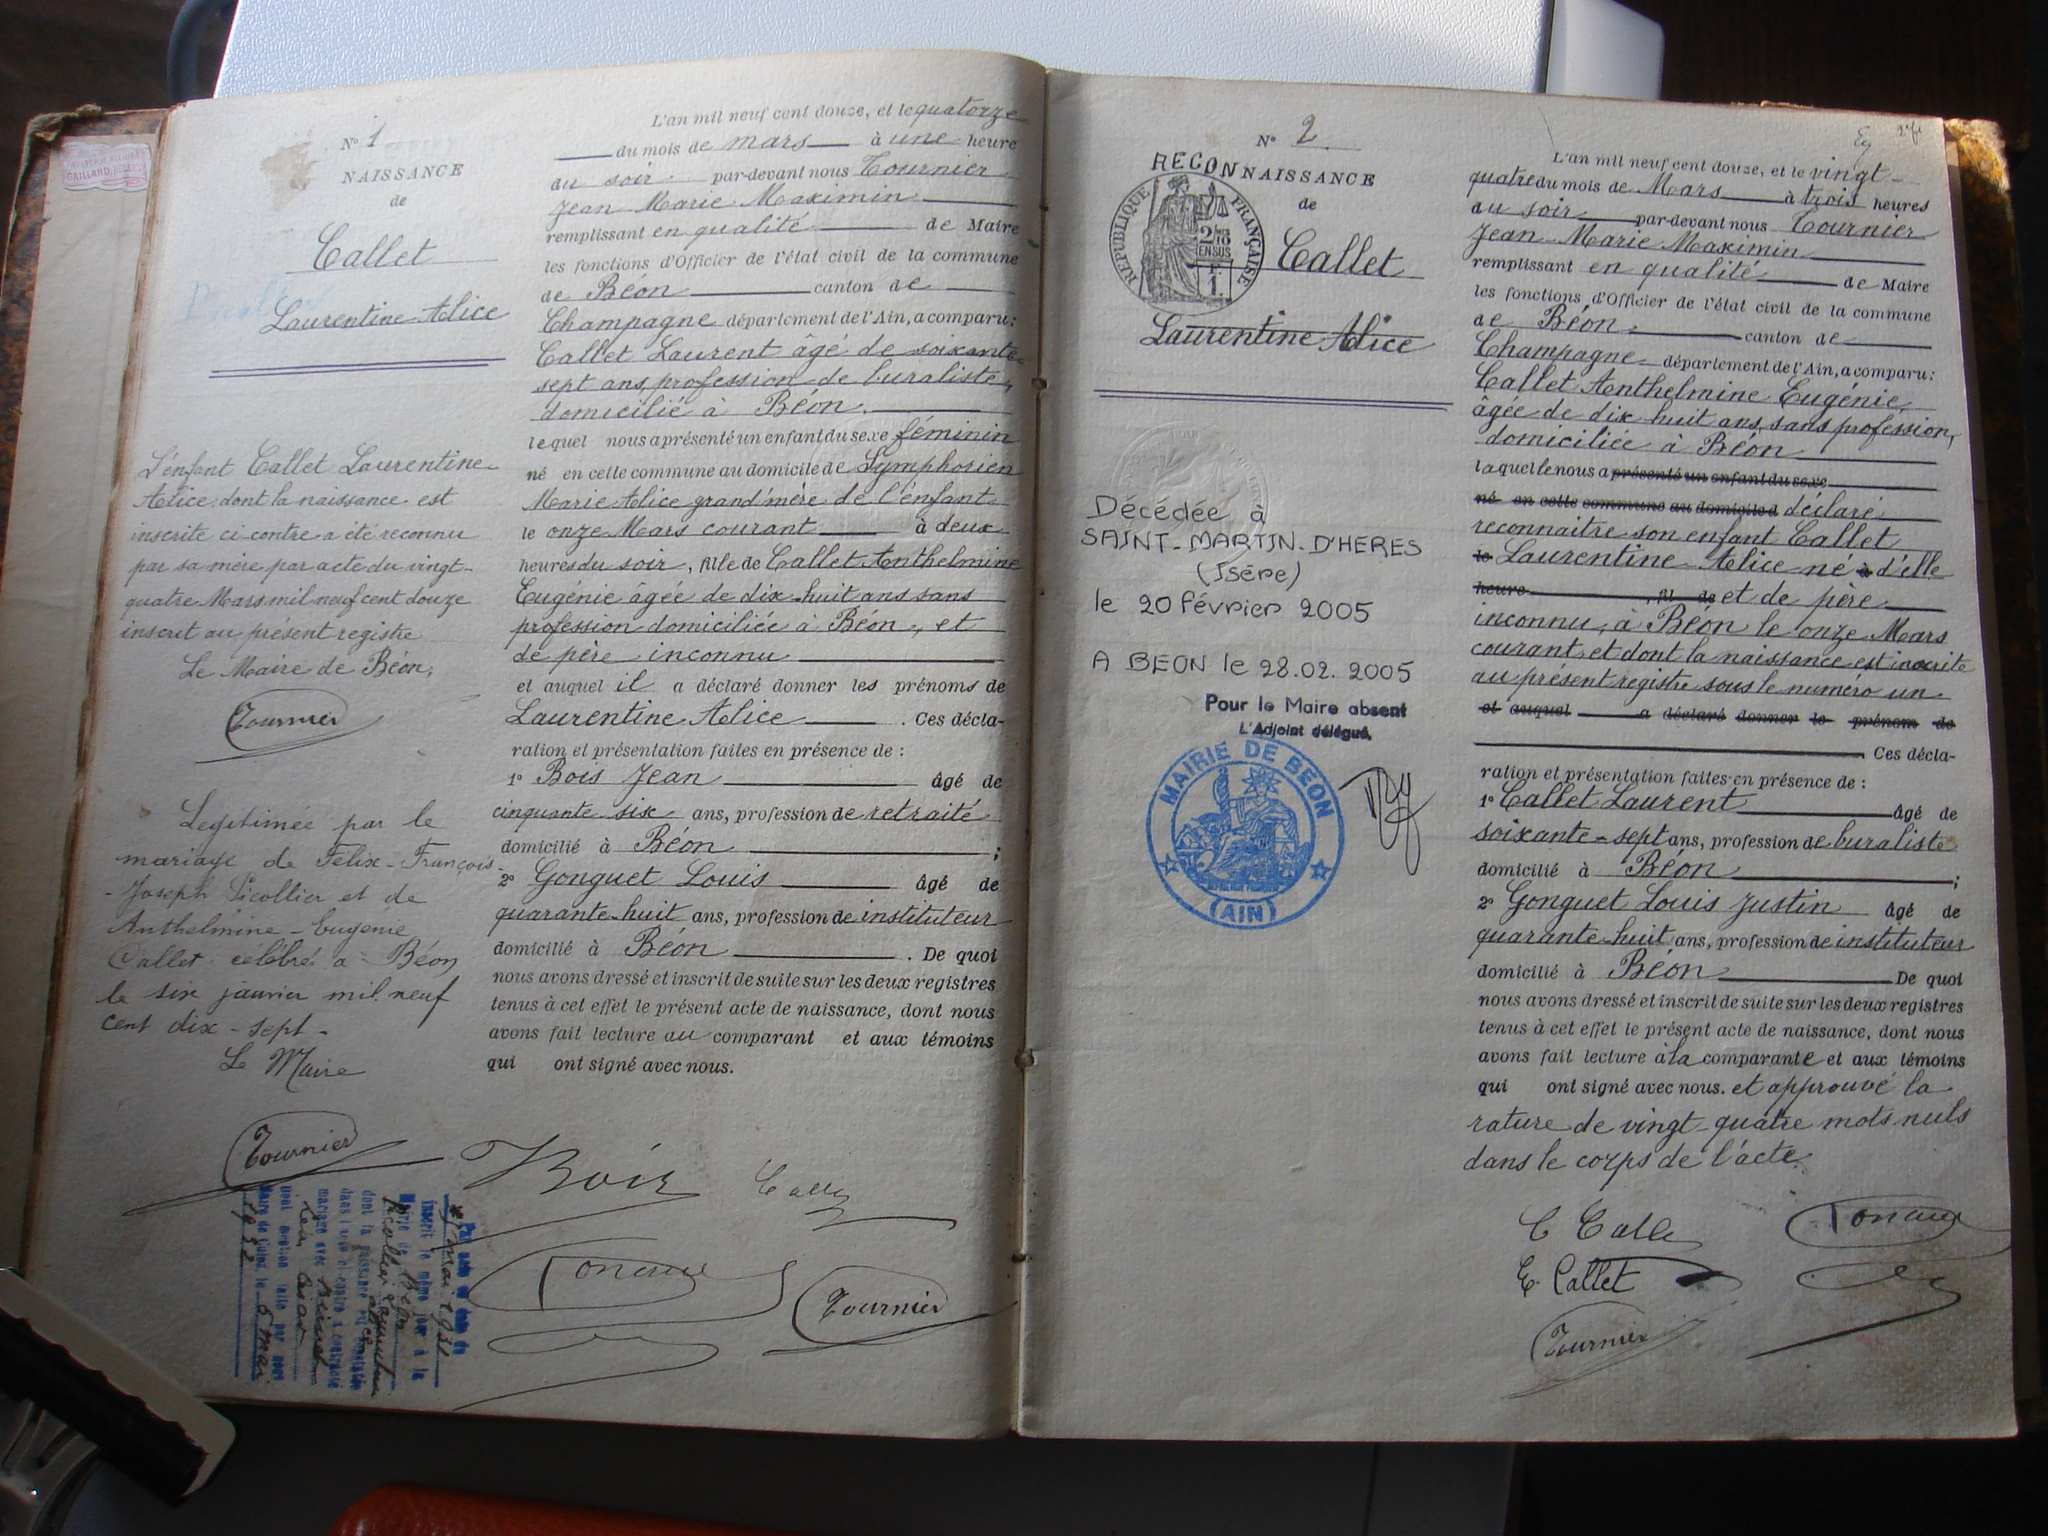 N° 1
NAISSANCE
de
Callet
Laurentine Alice
L'enfant Callet Laurentine
Alice dont la naissance est
inscrite ci contre a été reconnu
par sa mère par acte du vingt-
quatre Mars mil neuf cent douze
inscrit au présent registre
Le Maire de Béon,
Tournier
Legitimée par le
mariage de Félix-François-
-Joseph Picollier et de
Anthelmine-Eugénie
Callet célébré à Béon
le six janvier mil neuf
cent dix-sept-
Le Maire
Tournier
L'an mil neuf cent douze, et le quatorze
du mois de mars à une heure
du soir par-devant nous Tournier
Jean Marie Maximin
remplissant en qualité de Maire
les fonctions d'Officier de l'état civil de la commune
de Béon canton de
Champagne département de l'Ain, a comparu:
Callet Laurent âgé de soixante-
sept ans, profession de buraliste,
domicilié à Béon.
lequel nous a présenté un enfant du sexe féminin
né en cette commune au domicile de Symphorien
Marie Alice grand'mère de l'enfant
le onze Mars courant à deux
heures du soir, fille de Callet Anthelmine
Eugénie âgée de dix-huit ans sans
profession domiciliée à Béon, et
de père inconnu
et auquel il a déclaré donner les prénoms de
Laurentine Alice . Ces décla-
ration et présentation faites en présence de :
1° Bois Jean âgé de
cinquante six ans, profession de retraité
domicilié à Béon ;
2° Gonguet Louis âgé de
quarante-huit ans, profession de instituteur
domicilié à Béon . De quoi
nous avons dressé et inscrit de suite sur les deux registres
tenus à cet effet le présent acte de naissance, dont nous
avons fait lecture au comparant et aux témoins
qui ont signé avec nous.
Bois
Tournier
N° 2
RECONNAISSANCE
de
REPUBLIQUE FRANÇAISE
Callet
Laurentine Alice
Décédée à
SAINT-MARTIN-D'HERES
(Isére)
le 20 février 2005
A BEON le 28.02.2005
Pour le Maire absent
L'Adjoint délégué,
MAIRIE DE BEON
(AIN)
L'an mil neuf cent douze, et le vingt-
quatre du mois de Mars à trois heures
du soir par-devant nous Tournier
Jean Marie Maximin
remplissant en qualité de Maire
les fonctions d'Officier de l'état civil de la commune
de Béon canton de
Champagne département de l'Ain, a comparu:
Callet Anthelmine Eugénie,
âgée de dix huit ans, sans profession,
domiciliée à Béon
laquelle nous a présenté un enfant du sexe
né en cette commune au domicile d déclaré
reconnaitre son enfant Callet
le Laurentine Alice né à d'elle
heure , fil de et de père
inconnu, à Béon le onze Mars
courant, et dont la naissance est inscrite
au présent registre sous le numéro un
et auquel a déclaré donner le prénom de
Ces décla-
ration et présentation faites en présence de :
1° Callet Laurent âgé de
soixante-sept ans, profession de buraliste
domicilié à Béon ;
2° Gonguet Louis Justin âgé de
quarante-huit ans, profession de instituteur
domicilié à Béon De quoi
nous avons dressé et inscrit de suite sur les deux registres
tenus à cet effet le présent acte de naissance, dont nous
avons fait lecture à la comparante et aux témoins
qui ont signé avec nous. et approuvé la
rature de vingt-quatre mots nuls
dans le corps de l'acte.
E. Callet
Tournier